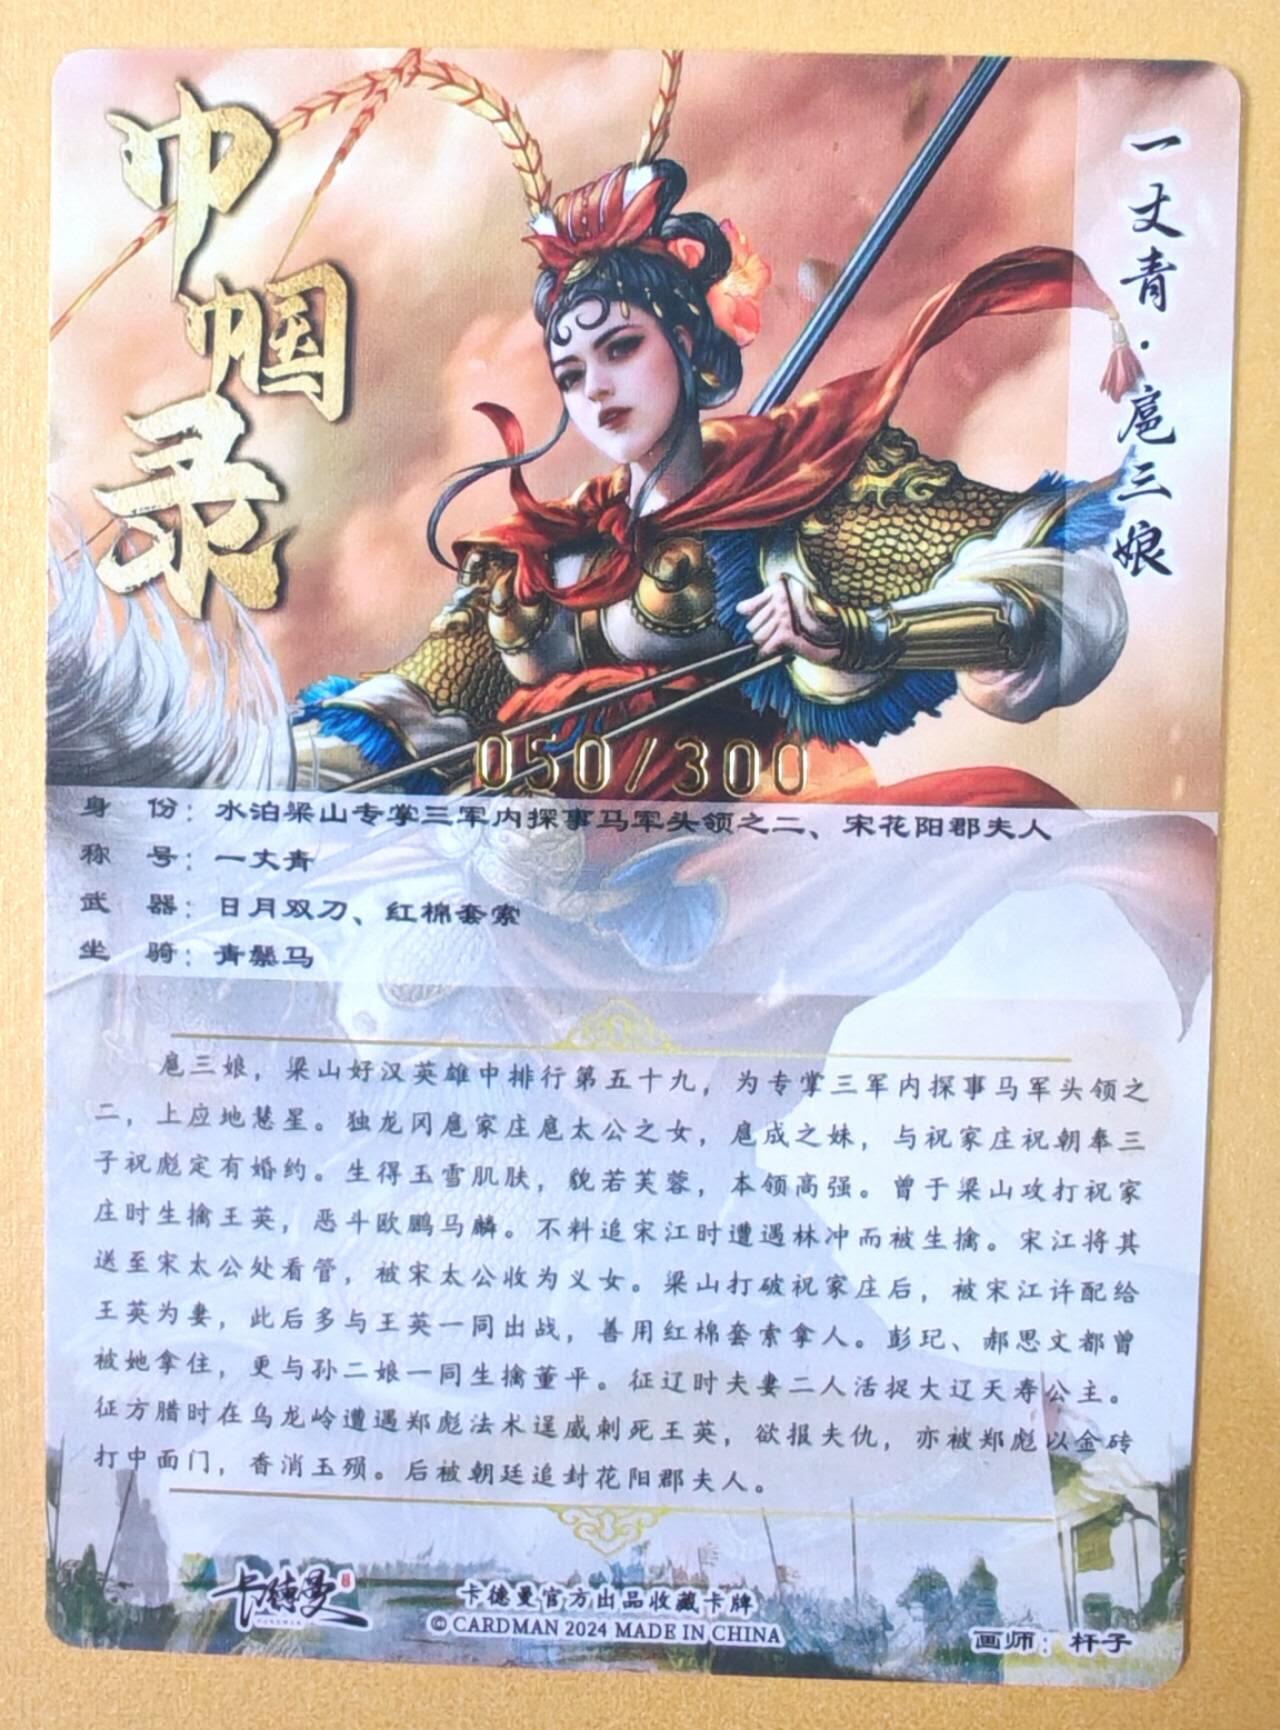 巾帼录
一丈青·扈三娘
050/300
身 份：水泊梁山专掌三军内探事马军头领之二、宋花阳郡夫人
称 号：一丈青
武 器：日月双刀、红棉套索
坐 骑：青鬃马
扈三娘，梁山好汉英雄中排行第五十九，为专掌三军内探事马军头领之
二，上应地慧星。独龙冈扈家庄扈太公之女，扈成之妹，与祝家庄祝朝奉三
子祝彪定有婚约。生得玉雪肌肤，貌若芙蓉，本领高强。曾于梁山攻打祝家
庄时生擒王英，恶斗欧鹏马麟。不料追宋江时遭遇林冲而被生擒。宋江将其
送至宋太公处看管，被宋太公收为义女。梁山打破祝家庄后，被宋江许配给
王英为妻，此后多与王英一同出战，善用红棉套索拿人。彭玘、郝思文都曾
被她拿住，更与孙二娘一同生擒董平。征辽时夫妻二人活捉大辽天寿公主。
征方腊时在乌龙岭遭遇郑彪法术逞威刺死王英，欲报夫仇，亦被郑彪以金砖
打中面门，香消玉殒。后被朝廷追封花阳郡夫人。
卡德曼
卡德曼官方出品收藏卡牌
© CARDMAN 2024 MADE IN CHINA
画师：杆子